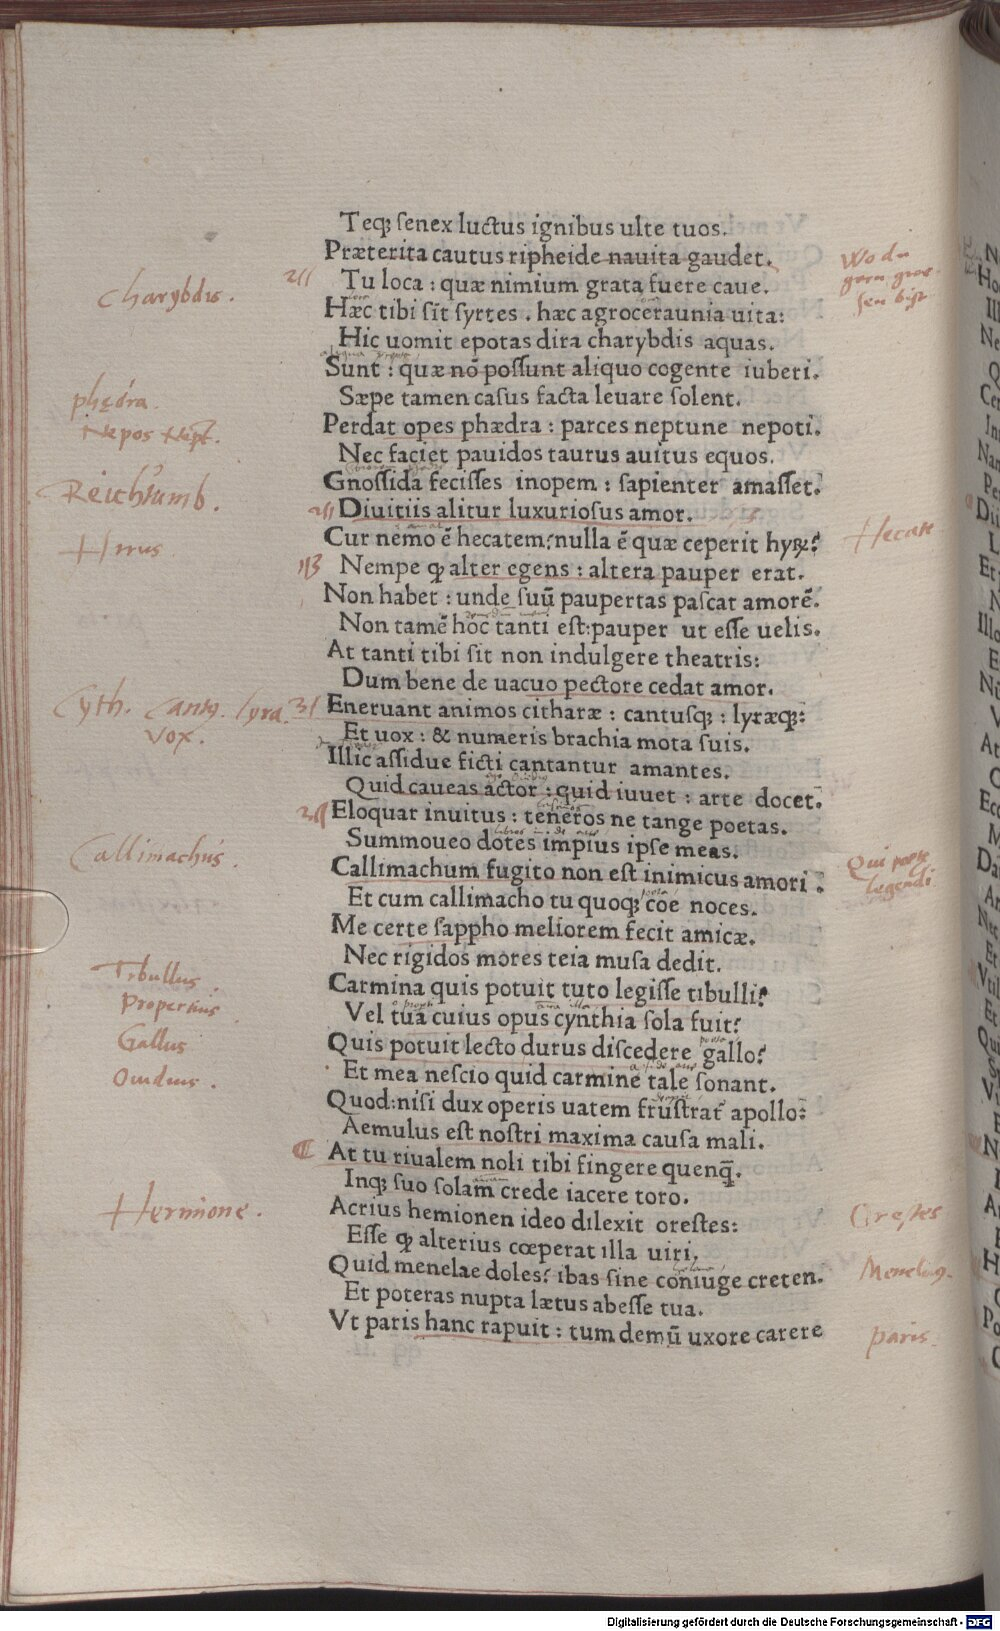 Teq; senex luctus ignibus ulte tuos.
Præterita cautus ripheide nauita gaudet.
Wo du
gern gwe
sen bist
Tu loca : quæ nimium grata fuere caue.
Charybdis.
Hæc tibi sīt syrtes . hæc agroceraunia uita:
Hic uomit epotas dira charybdis aquas.
Sunt : quæ nō possunt aliquo cogente iuberi.
Sæpe tamen casus facta leuare solent.
phędra.
Perdat opes phædra : parces neptune nepoti.
Nepos Nept.
Nec faciet pauidos taurus auitus equos.
Gnossida fecisses inopem : sapienter amasset.
Reichtumb.
Diuitiis alitur luxuriosus amor.
Cur nemo ē hecatem? nulla ē quæ ceperit hyꝝ?
Hecate
Hirus
Nempe ꝙ alter egens : altera pauper erat.
Non habet : unde suū paupertas pascat amorē.
Non tamē hoc tanti est: pauper ut esse uelis.
At tanti tibi sit non indulgere theatris:
Dum bene de uacuo pectore cedat amor.
Cyth. Cant. lyra.
Eneruant animos citharæ : cantusq; : lyræq;:
Vox.
Et uox : & numeris brachia mota suis.
Illic assidue ficti cantantur amantes.
Quid caueas actor : quid iuuet : arte docet.
Eloquar inuitus : teneros ne tange poetas.
Summoueo dotes impius ipse meas.
Callimachus.
Callimachum fugito non est inimicus amori :
Qui poete
legendi
Et cum callimacho tu quoq; coe noces.
Me certe sappho meliorem fecit amicæ.
Nec rigidos mores teia musa dedit.
Tibullus.
Carmina quis potuit tuto legisse tibulli?
Propertius
Vel tua cuius opus cynthia sola fuit?
Gallus
Quis potuit lecto durus discedere gallo?
Ouidius.
Et mea nescio quid carmine tale sonant.
Quod: nisi dux operis uatem frustrat apollo:
Aemulus est nostri maxima causa mali.
At tu riualem noli tibi fingere quenq̄.
Inq; suo solam crede iacere toro.
Hermione.
Acrius hemionen ideo dilexit orestes:
Orestes
Esse ꝙ alterius cœperat illa uiri.
Quid menelae doles? ibas sine coniuge creten.
Menelaus.
Et poteras nupta lætus abesse tua.
Vt paris hanc rapuit : tum demū uxore carere
paris.
Digitalisierung gefördert durch die Deutsche Forschungsgemeinschaft - DFG